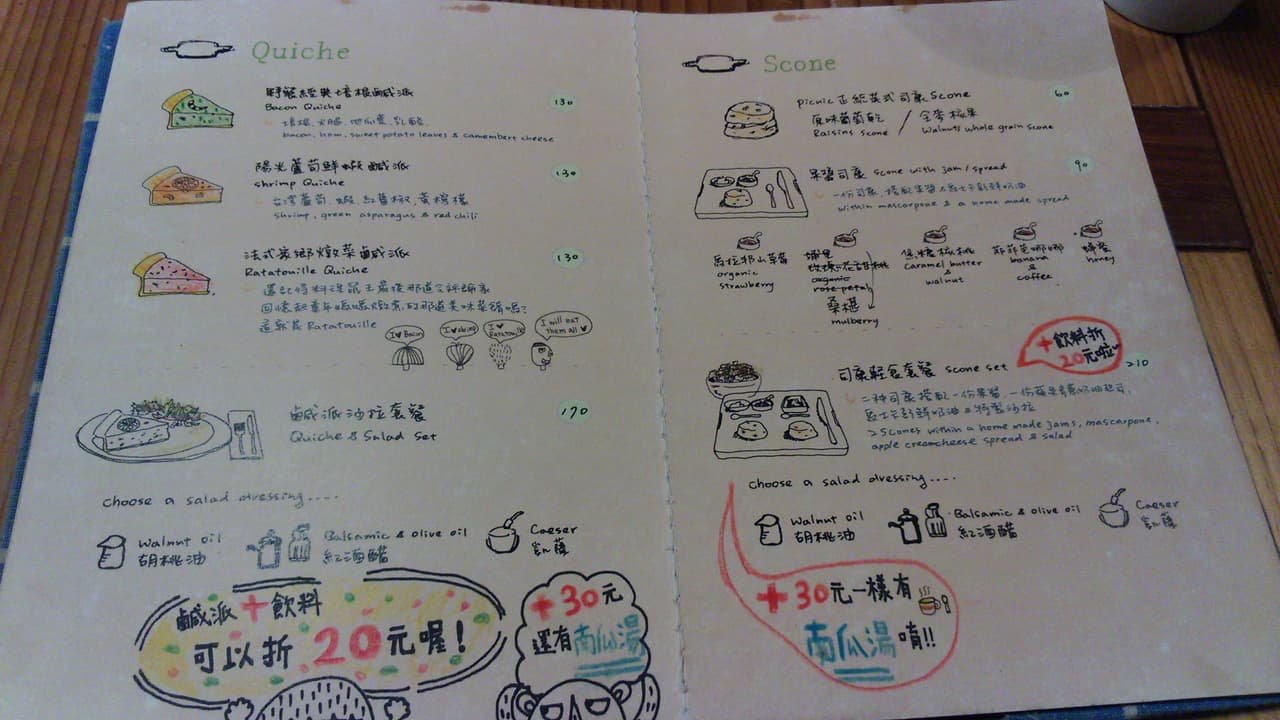 Quiche
野餐經典培根鹹派
130
Bacon Quiche
培根、火腿、地瓜葉、乳酪
bacon, ham, sweet potato leaves & camembert cheese
陽光蘆筍鮮蝦鹹派
130
shrimp Quiche
shrimp, green asparagus & red chili
法式燉菜鹹派
130
Ratatouille Quiche
還記得料理鼠王最後那道
這就是Ratatouille
I ♥ Bacon
I ♥ shrimp
I ♥ Ratatouille
I will eat them all ♥
鹹派沙拉套餐
170
Quiche & Salad Set
choose a salad dressing....
Walnut oil
胡桃油
Balsamic & olive oil
紅酒醋
Caeser
凱薩
鹹派+飲料
可以折20元喔!
+30元
還有南瓜湯
Scone
picnic正統英式司康Scone
60
原味葡萄乾 / 全麥核果
Raisins scone
Walnuts whole grain scone
果醬司康 scone with jam / spread
90
within mascarpone & a home made spread
organic
strawberry
organic
rose-petal
桑椹
mulberry
焦糖核桃
caramel butter
&
walnut
banana
&
coffee
蜂蜜
honey
+飲料折
20元啦
司康輕食套餐 scone set
210
二種司康搭配一份果醬、一份蘋果
2 scones within a home made jams, mascarpone,
apple creamcheese spread & salad
choose a salad dressing....
Walnut oil
胡桃油
Balsamic & olive oil
紅酒醋
Caeser
凱薩
+30元一樣有
南瓜湯唷!!